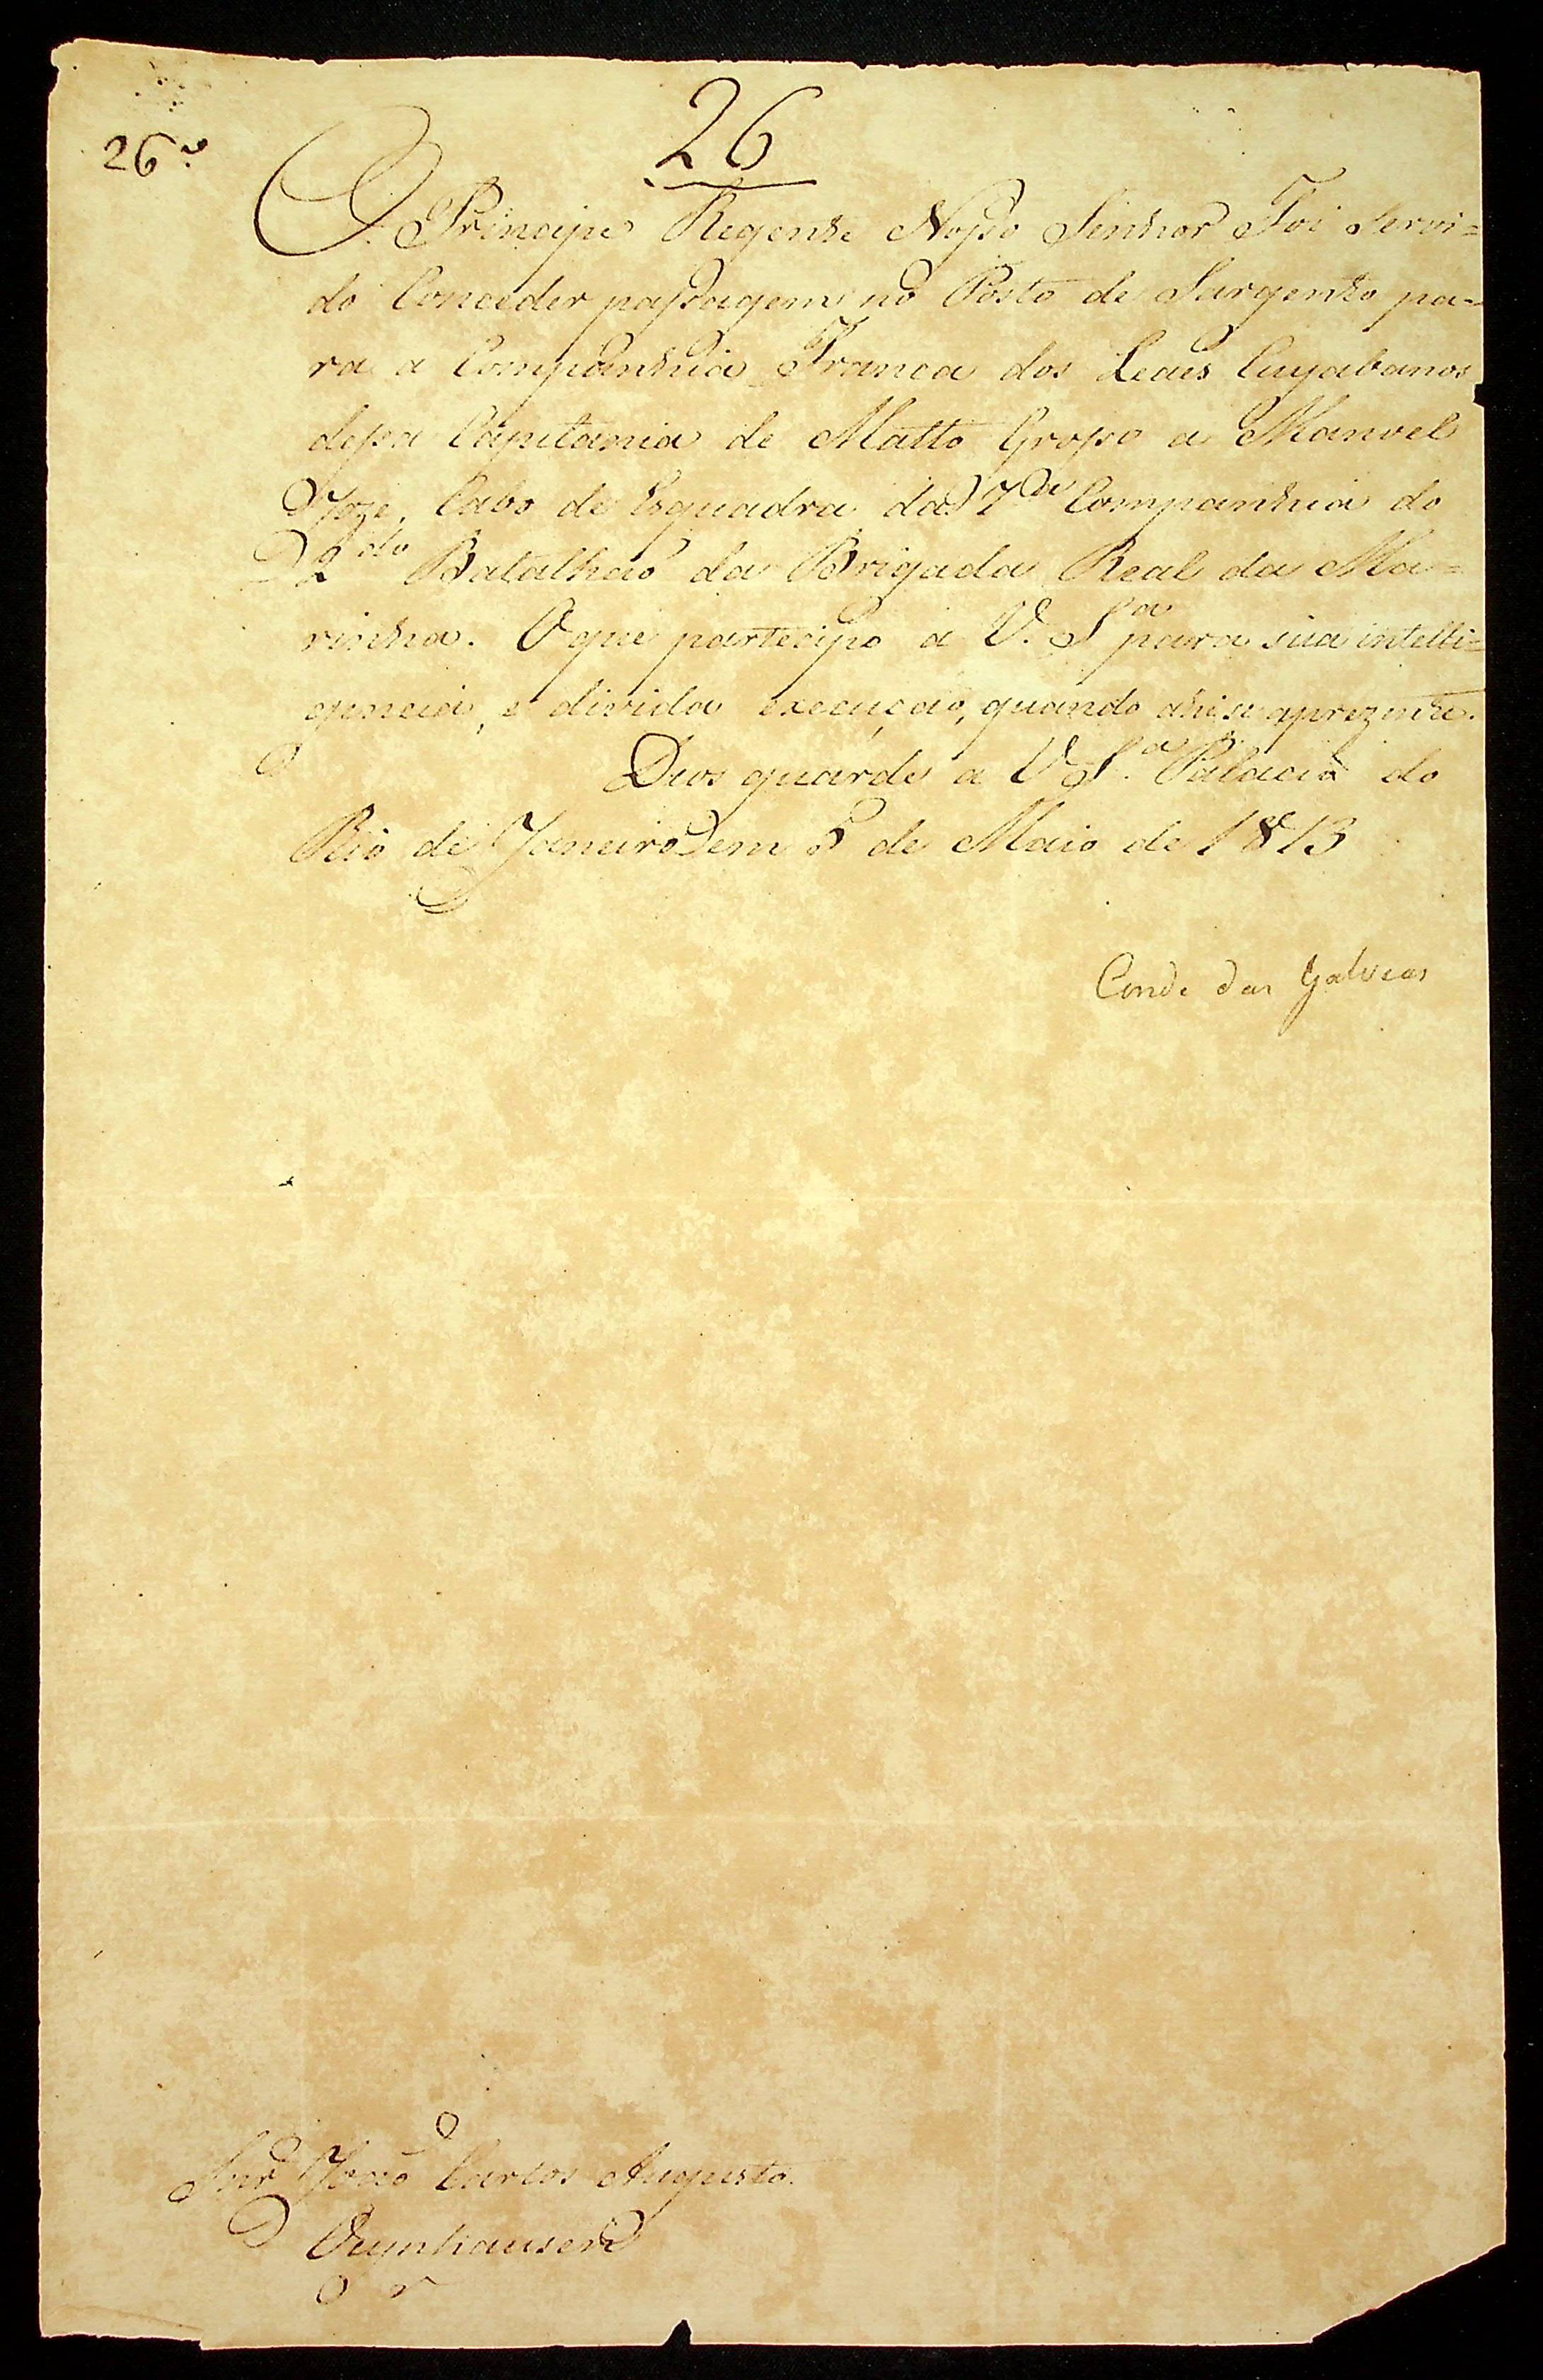 26
26.º
O Principe Regente Nosso Senhor Foi Servi=
do Conceder passagem no Posto de Sargento pa=
ra a Companhia Franca dos Leaes Cuyabanos
dessa Capitania de Matto Grosso a Manoel
Joze, Cabo de Esquadra da 7.ª Companhia do
2.do Batalhaõ da Brigada Real da Ma=
rinha. O que partecipo a V. S.ª para sua intelli=
gencia, e divida execuçaõ, quando ahi se aprezente.
Deos guarde a V S.ª Palacio do
Rio de Janeiro em de Maio de 1813
Conde das Galveas
Snr Joaõ Carlos Augusto
Oeynhausen